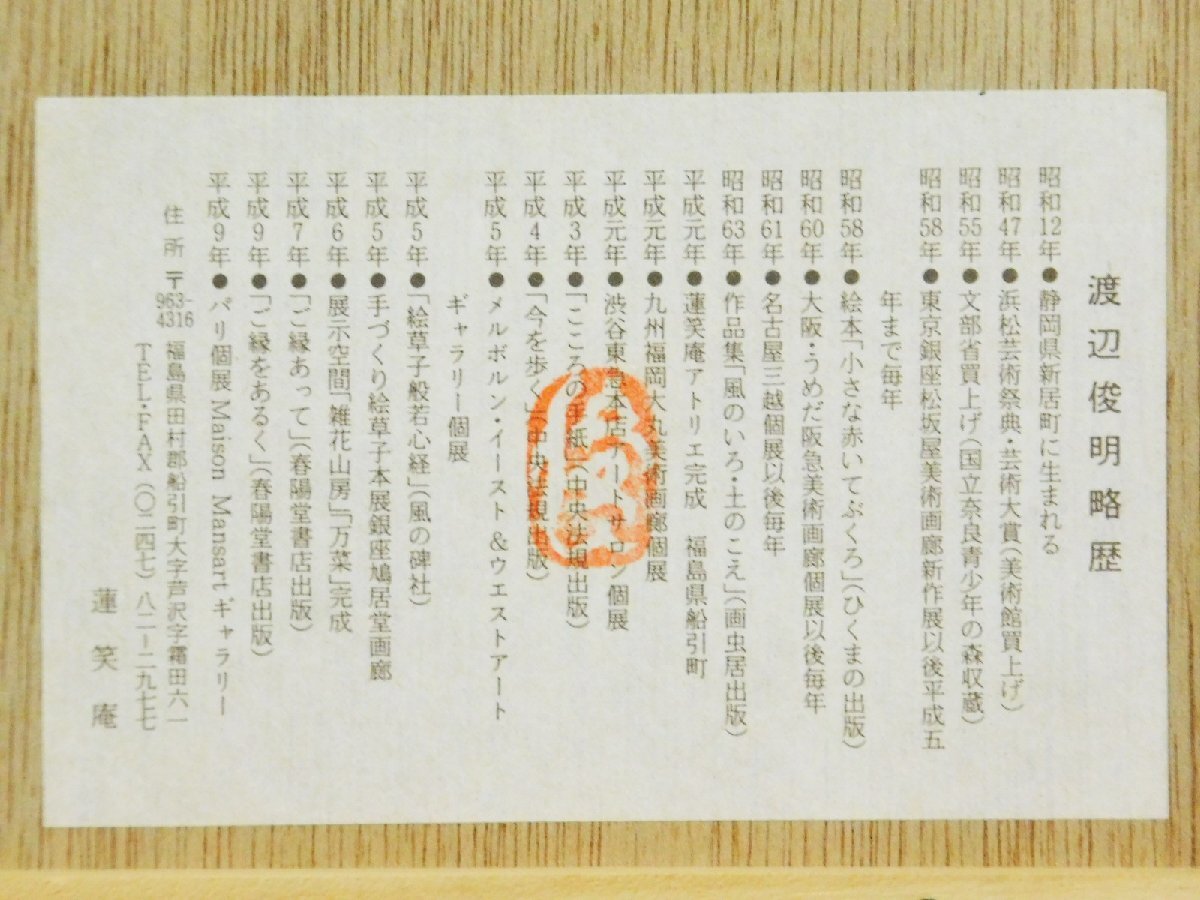 渡辺俊明略歴
昭和12年●静岡県新居町に生まれる
昭和47年●浜松芸術祭典・芸術大賞(美術館買上げ)
昭和55年●文部省買上げ(国立奈良青少年の森収蔵)
昭和58年●東京銀座松坂屋美術画廊新作展以後平成五
年まで毎年
昭和58年●絵本「小さな赤いてぶくろ」(ひくまの出版)
昭和60年●大阪・うめだ阪急美術画廊個展以後毎年
昭和61年●名古屋三越個展以後毎年
昭和63年●作品集「風のいろ・土のこえ」(画虫居出版)
平成元年●蓮笑庵アトリエ完成 福島県船引町
平成元年●九州福岡大丸美術画廊個展
平成元年●渋谷東急本店アートサロン個展
平成3年●「こころの手紙」(中央法規出版)
平成4年●「今を歩く」(中央法規出版)
平成5年●メルボルン・イースト&ウエストアート
ギャラリー個展
平成5年●「絵草子般若心経」(風の碑社)
平成5年●手づくり絵草子本展銀座鳩居堂画廊
平成6年●展示空間「雑花山房」「万菜」完成
平成7年●「ご縁あって」(春陽堂書店出版)
平成9年●「ご縁をあるく」(春陽堂書店出版)
平成9年●パリ個展 Maison Mansart ギャラリー
住所 〒963-4316 福島県田村郡船引町大字芦沢字霜田六一
TEL・FAX(〇二四七)八二ー二九七七
蓮笑庵